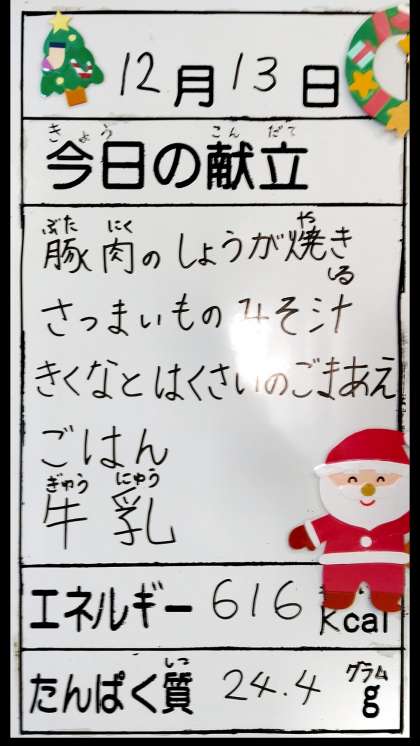 12月13日
きょう こんだて
今日の献立
ぶた にく や
豚肉のしょうが焼き
しる
さつまいものみそ汁
きくなとはくさいのごまあえ
ごはん
ぎゅう にゅう
牛乳
エネルギー 616 kcal
しつ グラム
たんぱく質 24.4 g